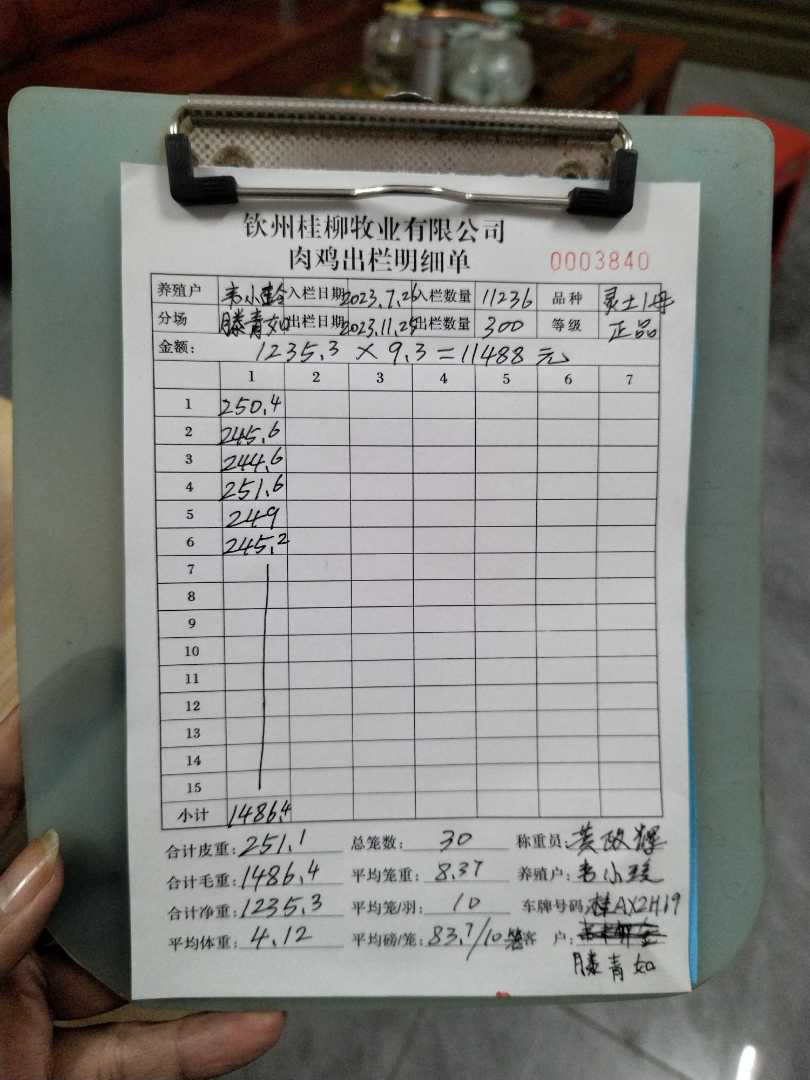 钦州桂柳牧业有限公司
肉鸡出栏明细单 0003840
养殖户 韦小玲 入栏日期 2023.7.26 入栏数量 11236 品种 灵土1号
分场 滕青如 出栏日期 2023.11.25 出栏数量 300 等级 正品
金额: 1235.3 × 9.3 = 11488 元
1 2 3 4 5 6 7
1 250.4
2 245.6
3 244.6
4 251.6
5 249
6 245.2
7
8
9
10
11
12
13
14
15
小计 1486.4
合计皮重: 251.1 总笼数: 30 称重员: 黄政辉
合计毛重: 1486.4 平均笼重: 8.37 养殖户: 韦小玲
合计净重: 1235.3 平均笼/羽: 10 车牌号码: 桂AX2H19
平均体重: 4.12 平均磅/笼: 83.7/10 客 户:
滕青如